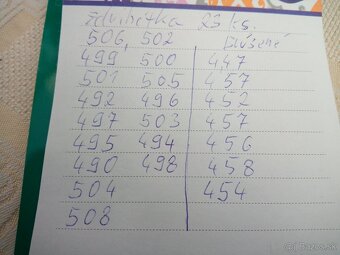 23 ks.
506, 502
499 500 447
501 505 457
492 496 452
497 503 457
495 494 456
490 498 458
504 454
508
Bazos.sk